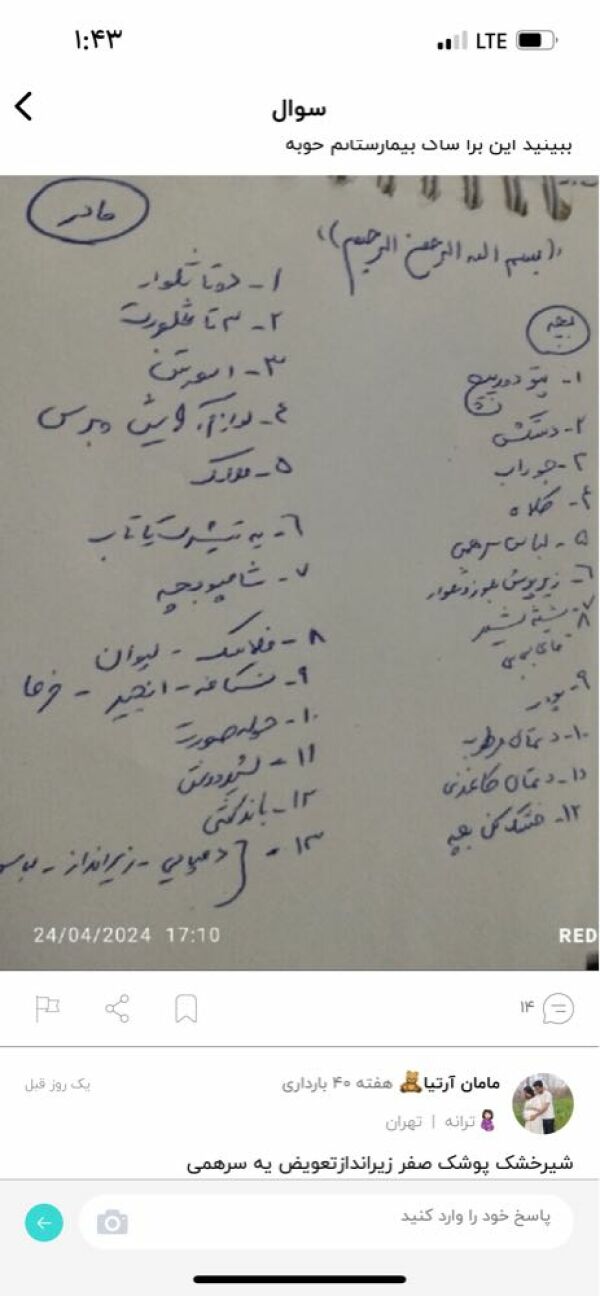 ۱:۴۳
LTE
سوال
ببینید این برا ساک بیمارستانم خوبه
((بسم الله الرحمن الرحیم))
بچه
۱- پتو دورپیچ
۲- دستکش
۳- جوراب
۴- کلاه
۵- لباس سرهمی
۶- زیرپوش بلوز و شلوار
۷- شیشه شیر
۸-
۹- پودر
۱۰- دستمال مرطوب
۱۱- دستمال کاغذی
۱۲- خشک کن بچه
مادر
۱- دوتا شلوار
۲- ۳ تا شورت
۳-
۴- لوازم آرایش و برس
۵-
۶- یه تیشرت یا تاب
۷- شامپو بچه
۸- فلاسک - لیوان
۹- نسکافه - انجیر - خرما
۱۰- حوله صورت
۱۱- شیردوش
۱۲-
۱۳- دمپایی - زیرانداز -
24/04/2024 17:10
RED
۱۴
مامان آرتیا🧸 هفته ۴۰ بارداری
یک روز قبل
ترانه | تهران
شیرخشک پوشک صفر زیراندازتعویض یه سرهمی
پاسخ خود را وارد کنید